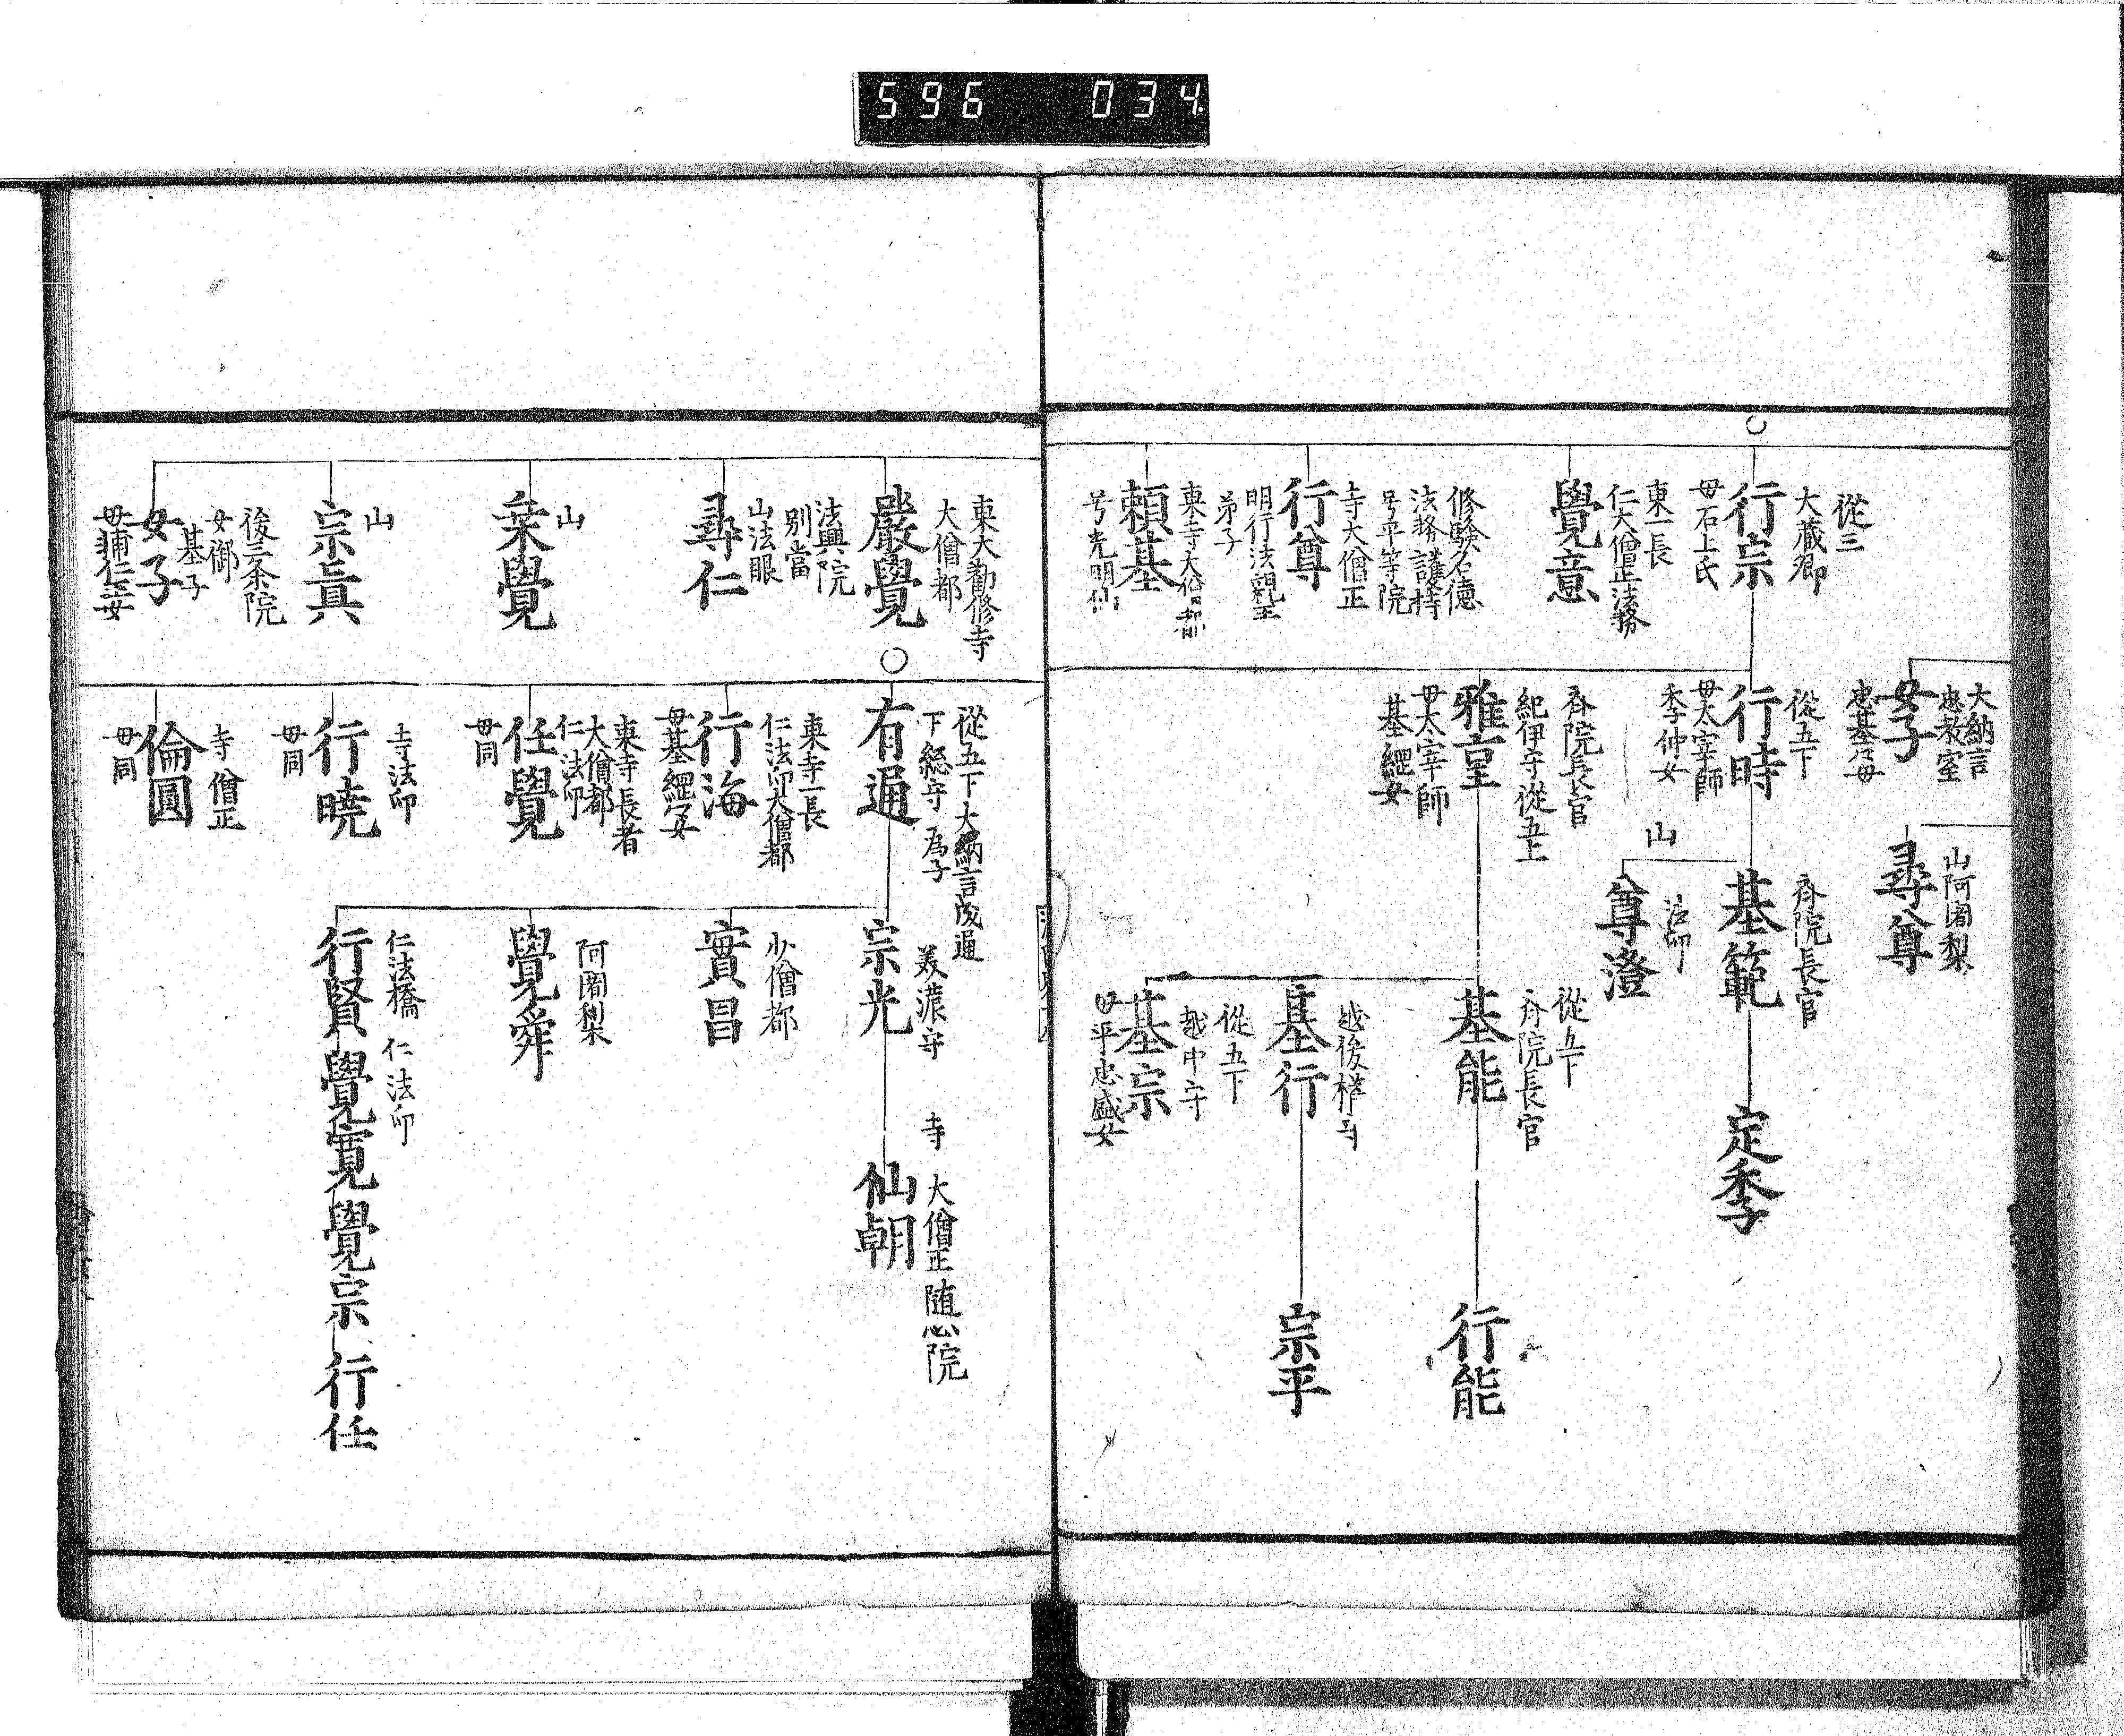 596 034
大納言
忠教室
女子
忠基公母
山阿闍梨
尋尊
從三
大藏卿
行宗
母石上氏
從五下
行時
母太宰師
季仲女
齊院長官
基範
定季
山
法印
尊澄
東一長
仁大僧正法務
覺意
齊院長官
紀伊守從五上
雅重
母太宰師
基綱女
從五下
齊院長官
基能
行能
修驗名德
法務護持
号平等院
寺大僧正
行尊
明行法親王
弟子
越後權守
基行
宗平
東寺大僧都
賴基
号光明仙
從五下
越中守
基宗
母平忠盛女
東大勸修寺
大僧都
嚴覺
從五下大納言成通
下総守為子
有通
美濃守
宗光
寺 大僧正随心院
仙朝
法興院
別當
山法眼
尋仁
東寺一長
仁法印大僧都
行海
母基綱女
少僧都
實昌
山
桒覺
東寺長者
大僧都
仁法印
任覺
母同
阿闍梨
覺舜
山
宗眞
寺法印
行曉
母同
仁法橋 仁法印
行賢 覺寛 覺宗 行任
後三条院
女御
基子
女子
寺僧正
倫圓
母同